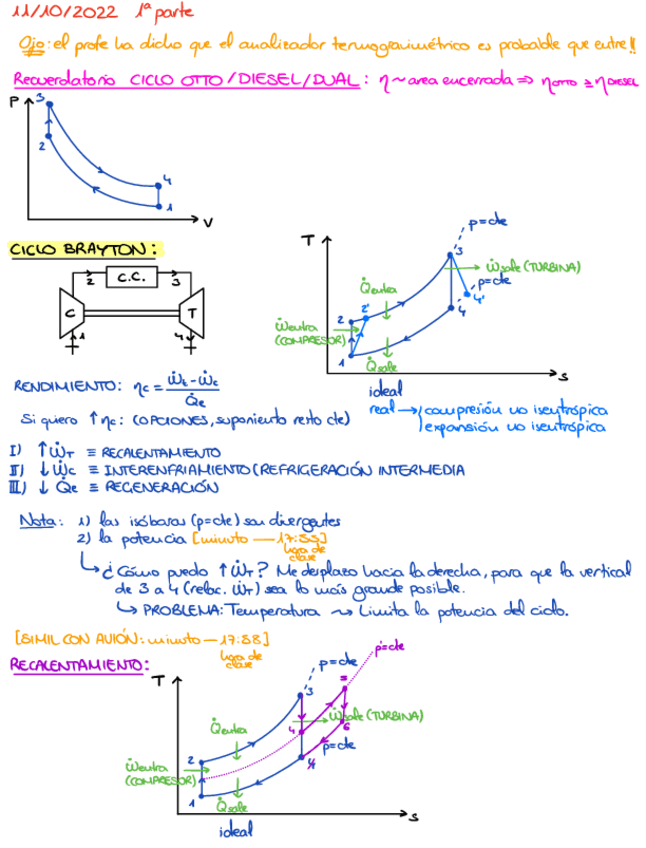 11/10/2022 1ª parte
Ojo: el profe ha dicho que el analizador termogravimétrico es probable que entre!!
Recuerdatorio CICLO OTTO/DIESEL/DUAL: η ~ area encerrada ⇒ ηOTTO ≥ ηDIESEL
P
3
2
4
1
V
CICLO BRAYTON:
2
C.C.
3
C
T
1
4
T
p=cte
3
Ẇsale (TURBINA)
p=cte
4
4'
Q̇entra
2
2'
Ẇentra
(COMPRESOR)
1
Q̇sale
s
ideal
real → compresión no isentrópica
expansión no isentrópica
RENDIMIENTO: ηc = Ẇt - Ẇc
Q̇e
Si quero ↑ηc: (OPCIONES, suponiento resto cte)
I) ↑ẆT ≡ RECALENTAMIENTO
II) ↓ẆC ≡ INTERENFRIAMIENTO (REFRIGERACIÓN INTERMEDIA
III) ↓ Q̇e ≡ REGENERACIÓN
Nota: 1) las isóbaras (p=cte) son divergentes
2) la potencia [minuto — 17:53]
hora de
clase
↳ ¿Cómo puedo ↑ẆT? Me desplazo hacia la derecha, para que la vertical
de 3 a 4 (relac. ẆT) sea lo más grande posible.
↳ PROBLEMA: Temperatura ⇝ Limita la potencia del ciclo.
[SIMIL CON AVIÓN: minuto — 17:58]
hora de
clase
RECALENTAMIENTO:
T
p=cte
p=cte
3
5
4
Ẇsale (TURBINA)
6
p=cte
4
Q̇entra
2
Ẇentra
(COMPRESOR)
1
Q̇sale
s
ideal